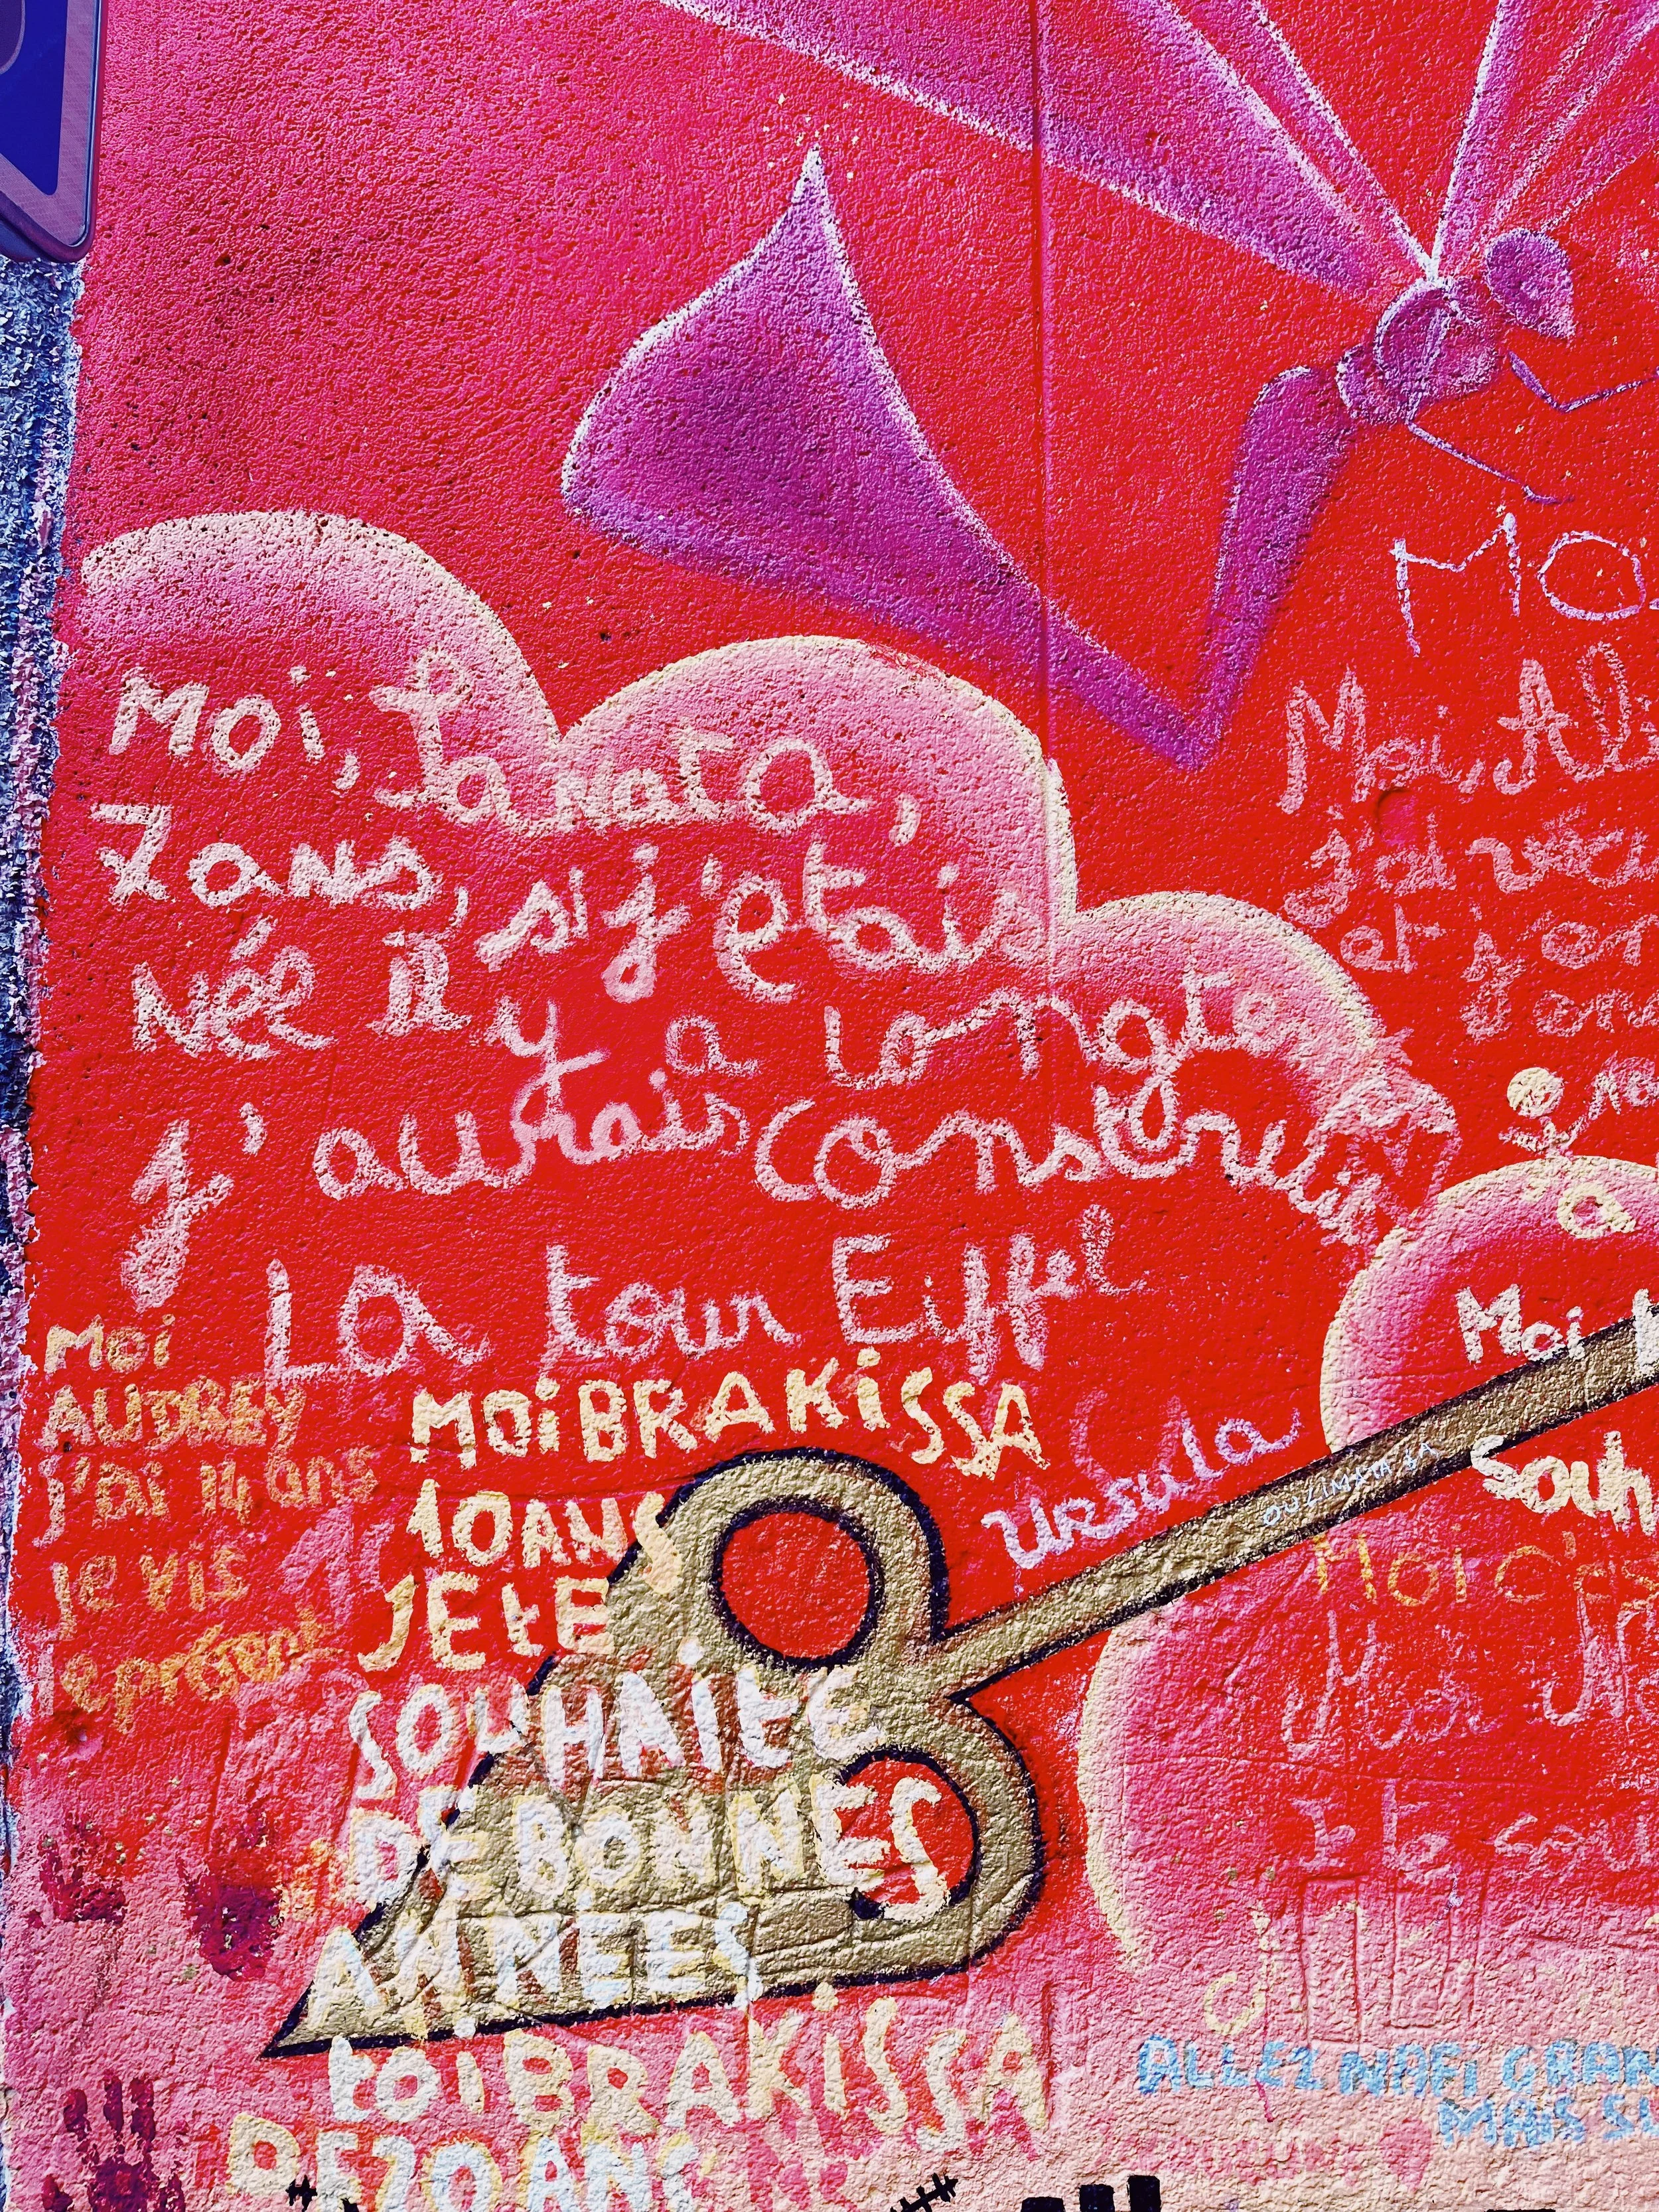 Moi,
7 ans, si j'étais
Née il y a longte
J'aurais construit
La tour Eiffel
Moi
AUDREY
j'ai 14 ans
je vis
le présent
MOi BRAKiSSA
10 ANS
JE tE
SOUHAitE
DE BONNES
ANNEES
toi BRAKiSSA
DE 10 ANS
Ursula
OULIMATA SA
MO
Moi, Ali
j'ai
et
a
Moi
Souh
Moi
Moi
Je te sou
ALLEZ NAFi GRAN
MAiS SU